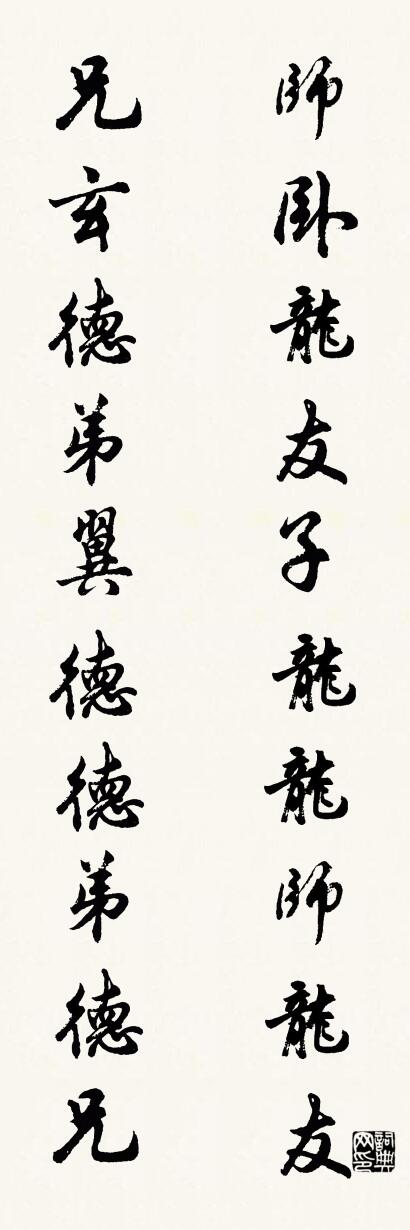 師卧龍友子龍龍師龍友
兄玄德弟翼德德弟德兄
詞典网印